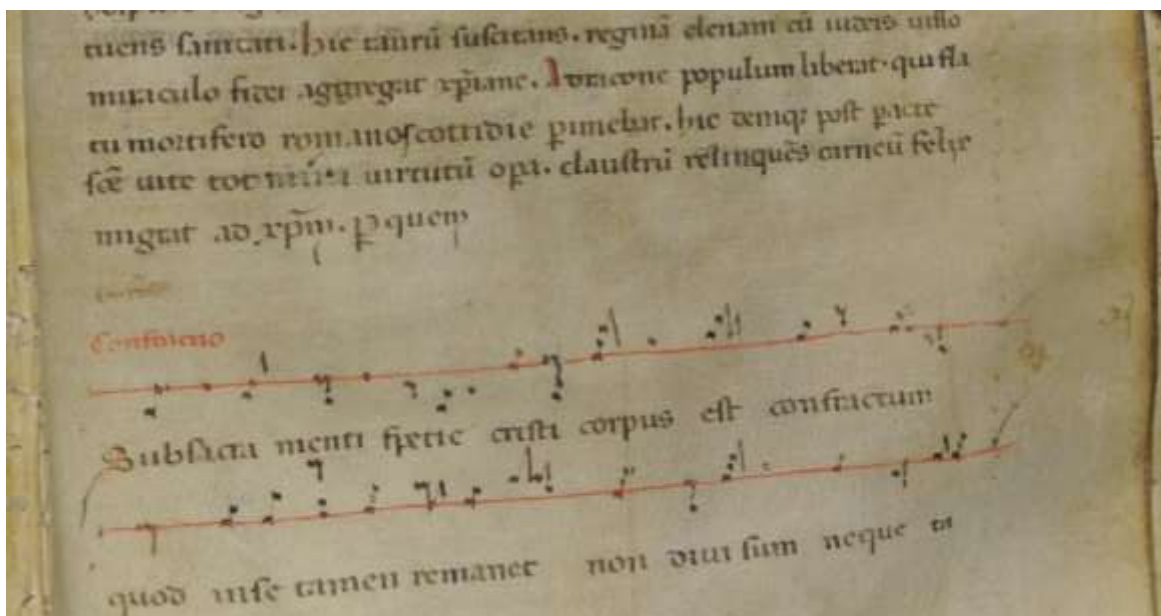 tuens sanitati. hic taurū suscitans. reginā elenam cū iudeis uiso
miraculo fidei aggregat xp̄iane. A dracone populum liberat. qui fla
tu mortifero romanos cottidie ꝑimebat. hic demq; post pacte
sc̄e uite tot uirtutū oꝑa. claustrū relinquēs carneū felix
migrat ad xp̄m. ꝑ quem
Subsacra menti specie cristi corpus est confractum
quod inse tamen remanet non diui sum neque